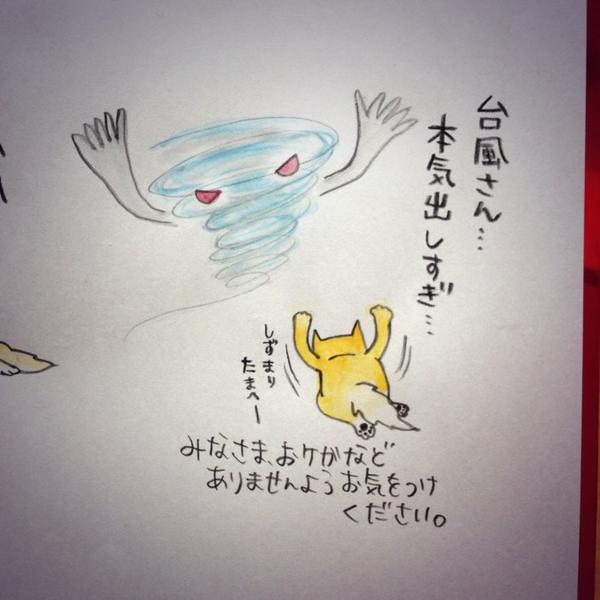 台風さん…
本気出しすぎ…
しずまり
たまへー
みなさま、おケガなど
ありませんようお気をつけ
ください。